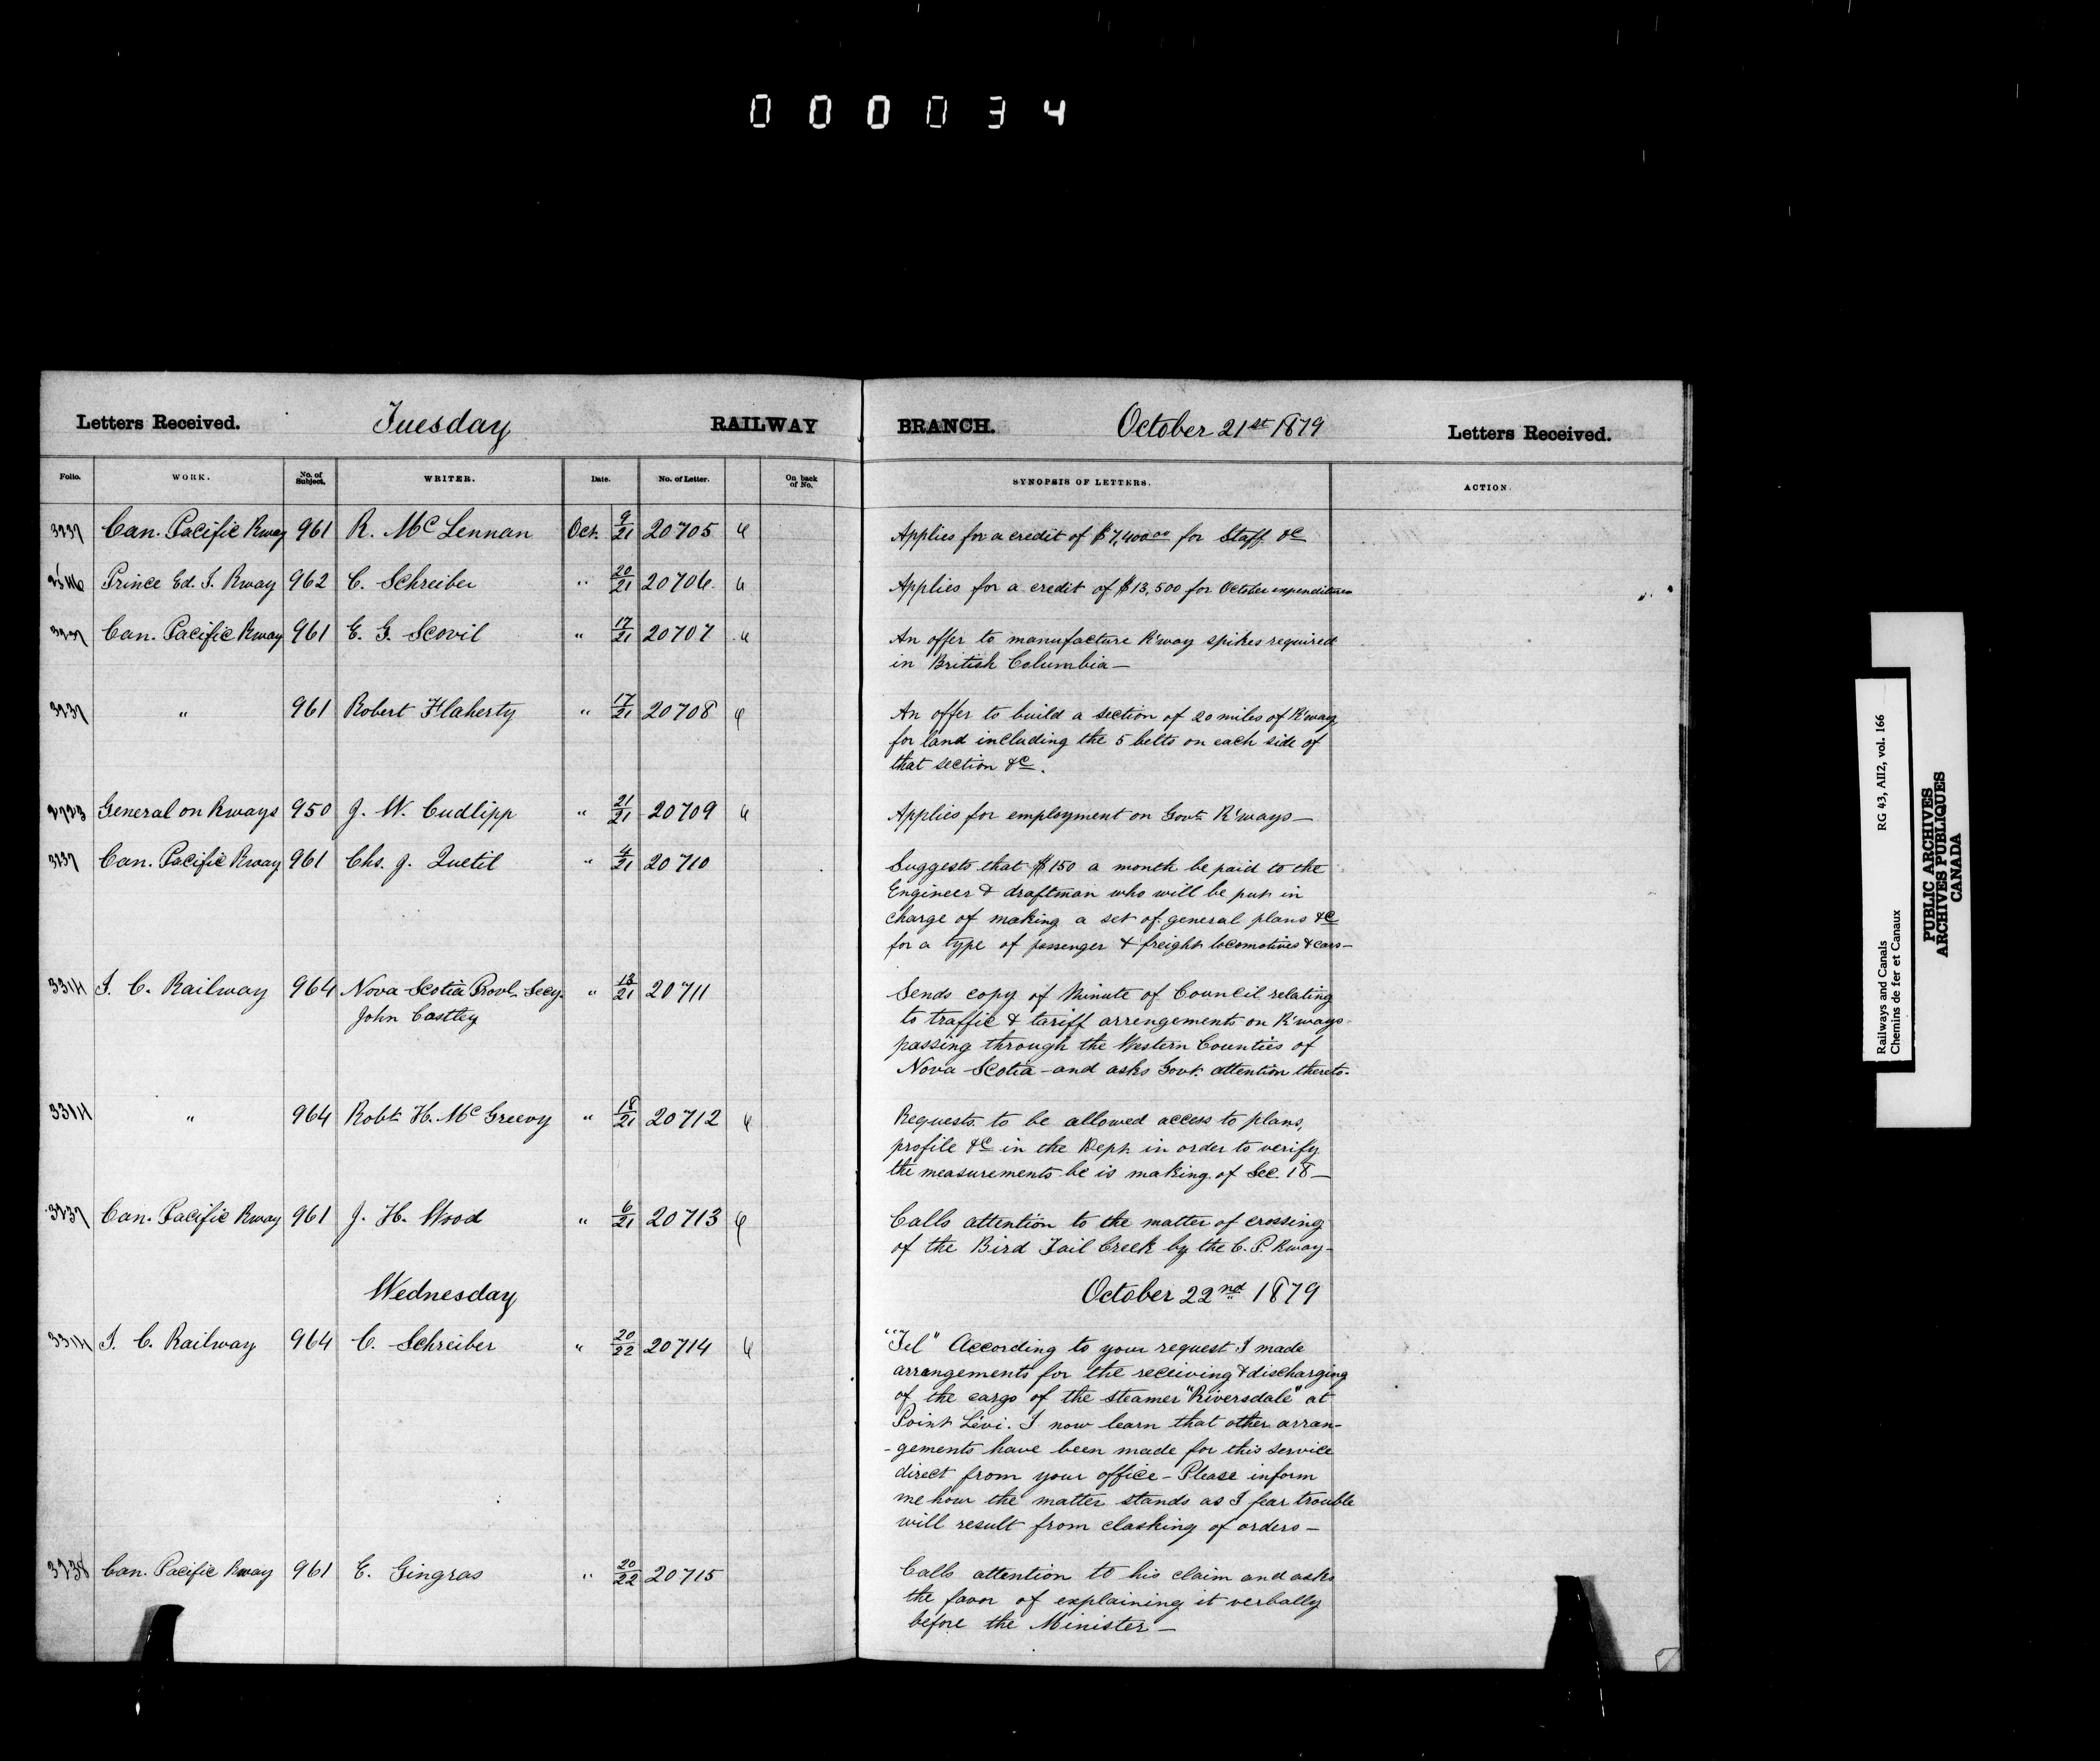 000034
Letters Received. Tuesday RAILWAY BRANCH. October 21st 1879 Letters Received.
Folio. WORK. No. of Subject. WRITER. Date. No. of Letter. On back of No. SYNOPSIS OF LETTERS. ACTION.
3237 Can. Pacific Rway 961 R. McLennan Oct. 9/21 20705 Applies for a credit of $7,400.00 for Staff &c
Prince Ed. I. Rway 962 C. Schreiber " 20/21 20706 Applies for a credit of $13,500 for October expenditures
3237 Can. Pacific Rway 961 E. G. Scovil " 17/21 20707 An offer to manufacture R'way spikes required
in British Columbia —
3237 " 961 Robert Flaherty " 17/21 20708 An offer to build a section of 20 miles of R'way
for land including the 5 belts on each side of
that section &c.
General on Rways 950 J. W. Cudlipp " 21/21 20709 Applies for employment on Govt. R'ways —
3237 Can. Pacific Rway 961 Chs. J. Quetil " 4/21 20710 Suggests that $150 a month be paid to the
Engineer & draftman who will be put in
charge of making a set of general plans &c
for a type of passenger & freight locomotives & cars —
3314 I. C. Railway 964 Nova Scotia Provl. Secy. " 13/21 20711 Sends copy of Minute of Council relating
John Costley to traffic & tariff arrengements on R'ways
passing through the Western Counties of
Nova Scotia - and asks Govt. attention thereto.
3314 " 964 Robt. H. McGreevy " 18/21 20712 Requests to be allowed access to plans,
profile &c in the Dept. in order to verify
the measurements he is making of Sec. 18 —
3237 Can. Pacific Rway 961 J. H. Wood " 6/21 20713 Calls attention to the matter of crossing
of the Bird Tail Creek by the C. P. Rway -
Wednesday October 22nd 1879
3314 I. C. Railway 964 C. Schreiber " 20/22 20714 "Tel" According to your request I made
arrangements for the receiving & discharging
of the cargo of the steamer "Riversdale" at
Point Lévi. I now learn that other arran-
-gements have been made for this service
direct from your office - Please inform
me how the matter stands as I fear trouble
will result from clashing of orders —
3238 Can. Pacific Rway 961 E. Gingras " 20/22 20715 Calls attention to his claim and asks
the favor of explaining it verbally
before the Minister —
Railways and Canals RG 43, AII2, vol. 166
Chemins de fer et Canaux
PUBLIC ARCHIVES
ARCHIVES PUBLIQUES
CANADA